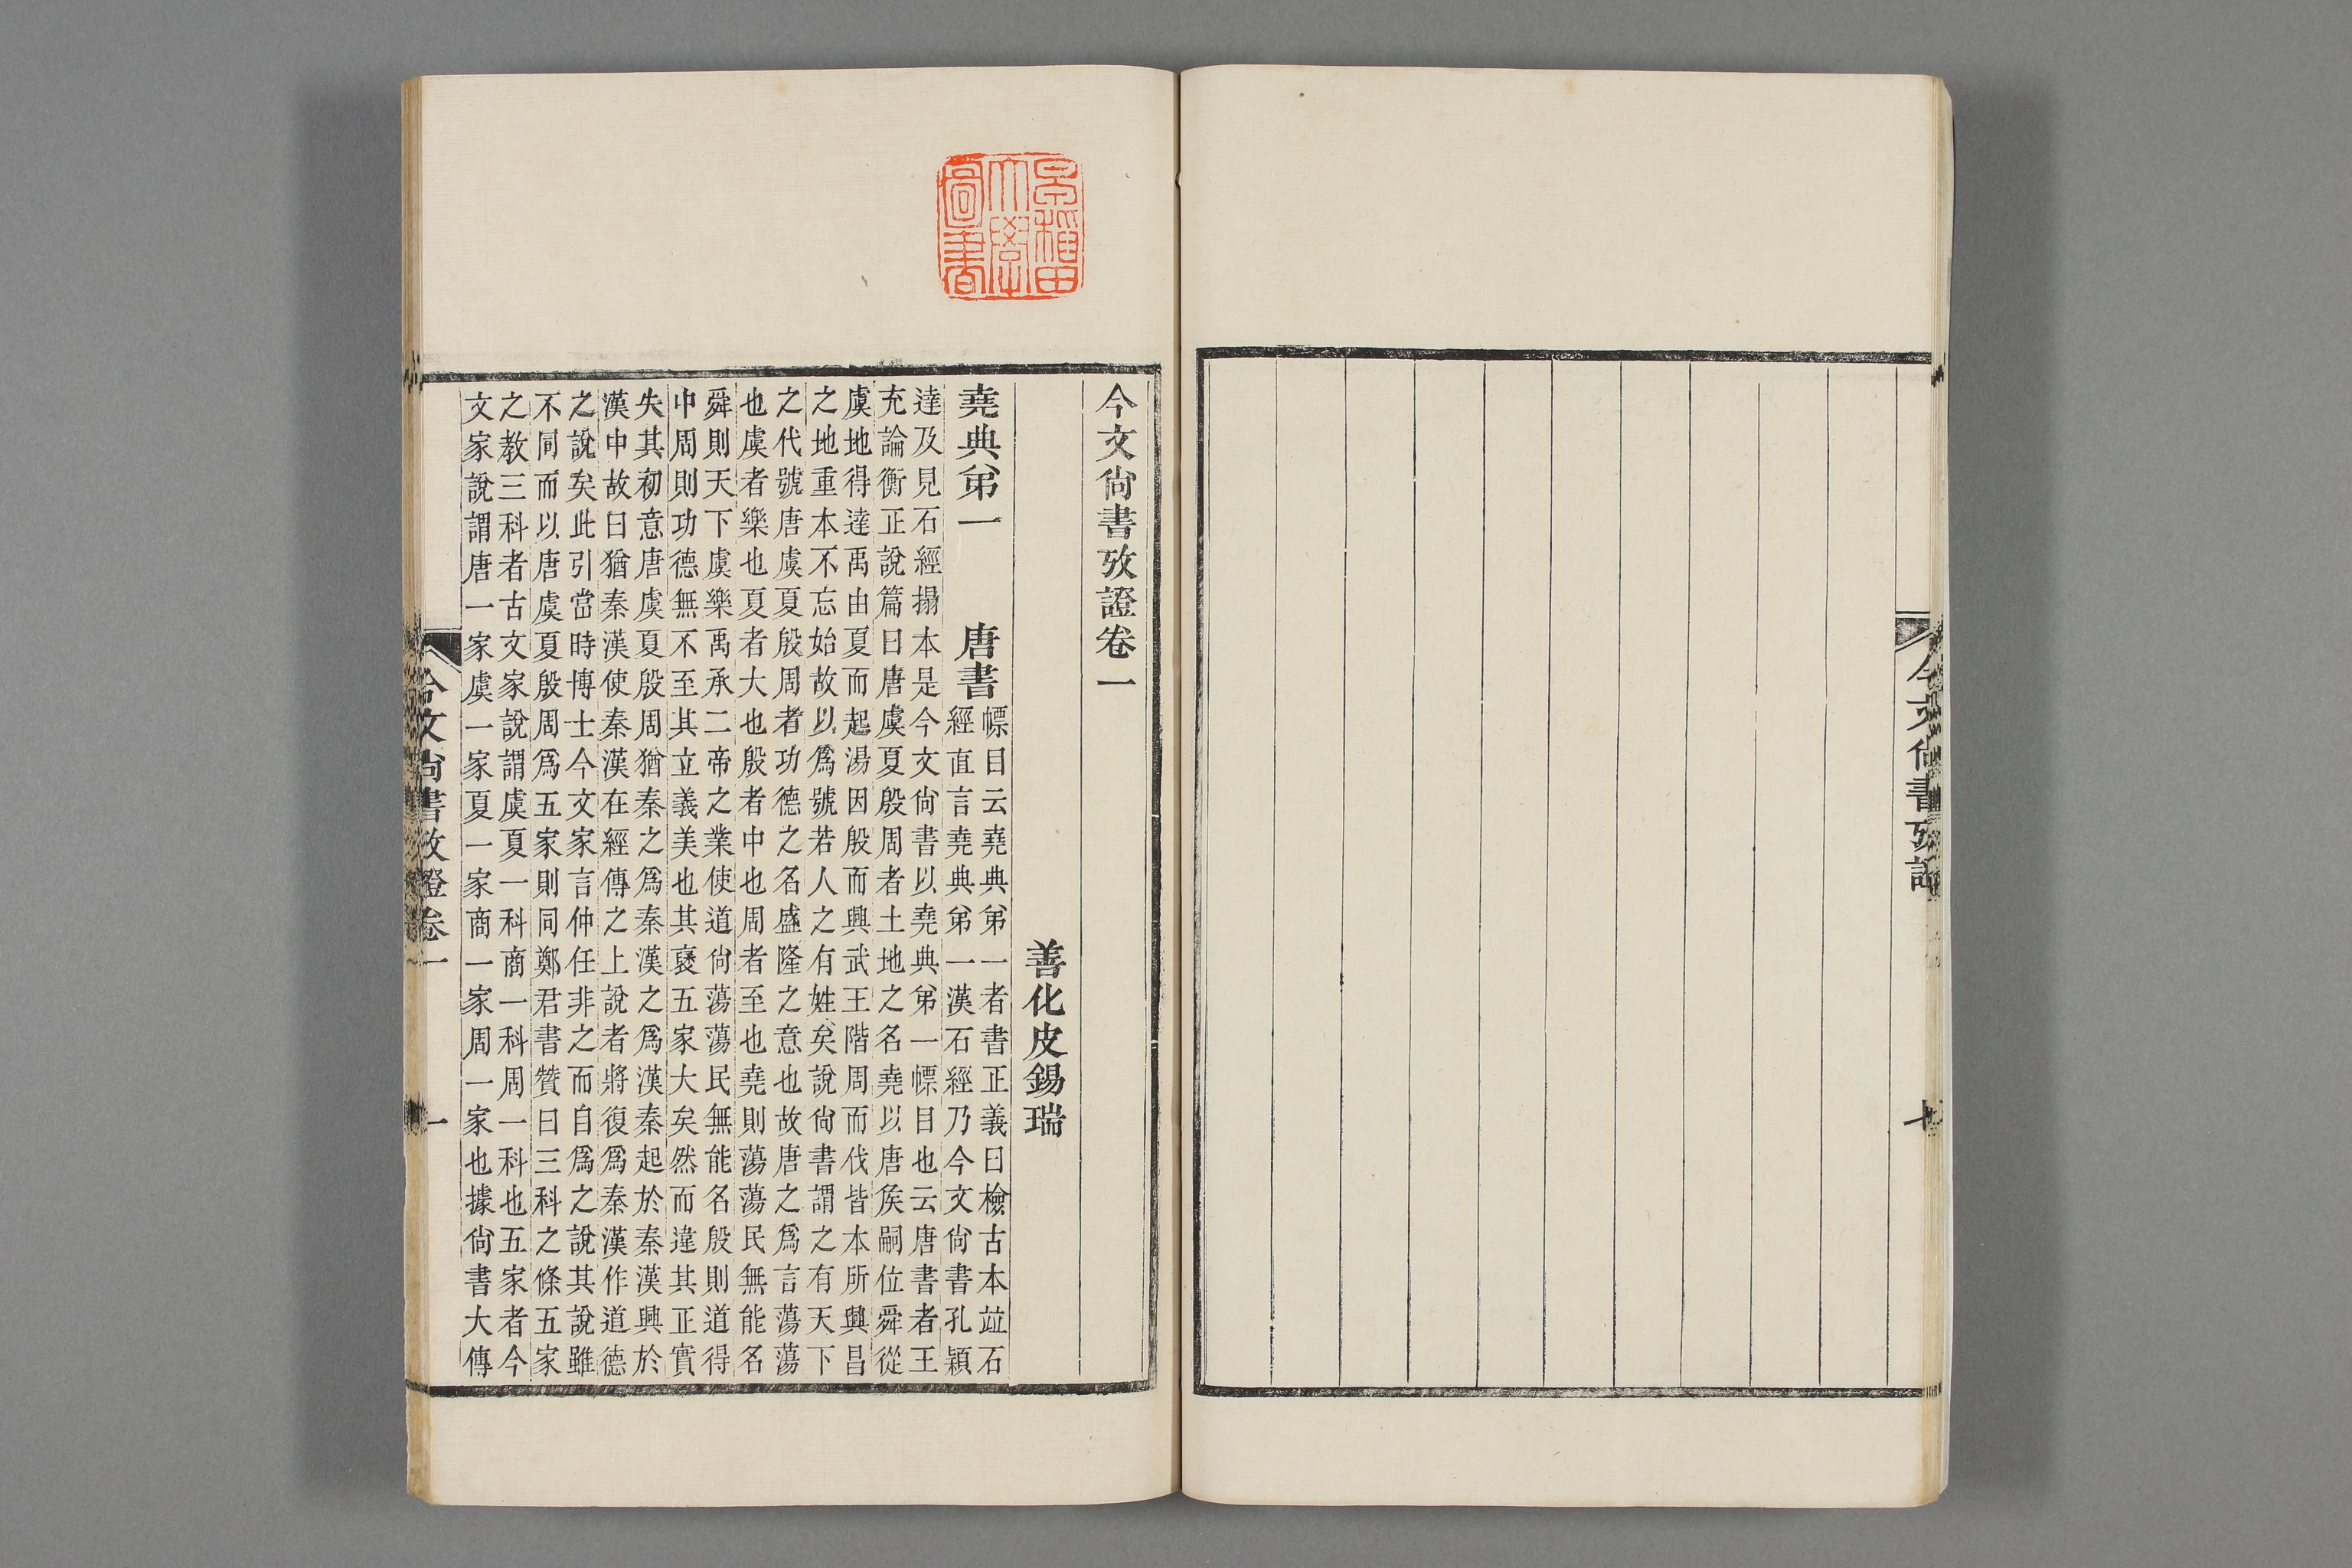 今文尚書攷證
早稻田
大學
圖書
今文尚書攷證卷一
善化皮錫瑞
堯典弟一　唐書
幖目云堯典弟一者書正義曰檢古本竝石
經直言堯典弟一漢石經乃今文尚書孔穎
達及見石經搨本是今文尚書以堯典弟一幖目也云唐書者王
充論衡正說篇曰唐虞夏殷周者土地之名堯以唐侯嗣位舜從
虞地得達禹由夏而起湯因殷而興武王階周而伐皆本所興昌
之地重本不忘始故以爲號若人之有姓矣說尚書謂之有天下
之代號唐虞夏殷周者功德之名盛隆之意也故唐之爲言蕩蕩
也虞者樂也夏者大也殷者中也周者至也堯則蕩蕩民無能名
舜則天下虞樂禹承二帝之業使道尚蕩蕩民無能名殷則道得
中周則功德無不至其立義美也其襃五家大矣然而違其正實
失其初意唐虞夏殷周猶秦之爲秦漢之爲漢秦起於秦漢興於
漢中故曰猶秦漢使秦漢在經傳之上說者將復爲秦漢作道德
之說矣此引當時博士今文家言仲任非之而自爲之說其說雖
不同而以唐虞夏殷周爲五家則同鄭君書贊曰三科之條五家
之教三科者古文家說謂虞夏一科商一科周一科也五家者今
文家說謂唐一家虞一家夏一家商一家周一家也據尚書大傳
今文尚書攷證卷一
一